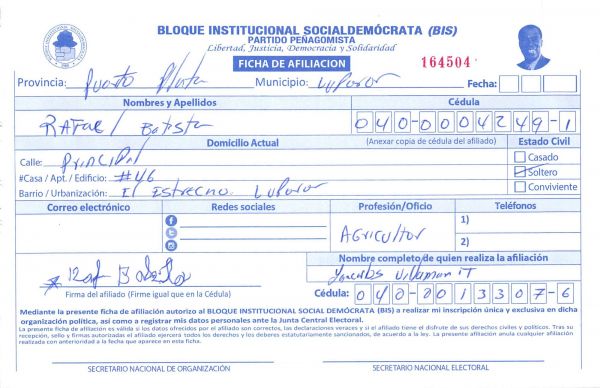 BLOQUE INSTITUCIONAL SOCIALDEMÓCRATA (BIS)
PARTIDO PEÑAGOMISTA
Libertad, Justicia, Democracia y Solidaridad
FICHA DE AFILIACION
164504
Provincia: Puerto Plata Municipio: Luperon Fecha:
Nombres y Apellidos Cédula
RAFAEL Batista 040-0004249-1
Domicilio Actual (Anexar copia de cédula del afiliado) Estado Civil
Calle: Principal
#Casa / Apt. / Edificio: #46
Barrio / Urbanización: El Estrecho Luperon
Casado
Soltero
Conviviente
Correo electrónico Redes sociales Profesión/Oficio Teléfonos
AGRICULTOR
1)
2)
Nombre completo de quien realiza la afiliación
Firma del afiliado (Firme igual que en la Cédula)
Cédula: 040-0013307-6
Mediante la presente ficha de afiliación autorizo al BLOQUE INSTITUCIONAL SOCIAL DEMÓCRATA (BIS) a realizar mi inscripción única y exclusiva en dicha
organización política, así como a registrar mis datos personales ante la Junta Central Electoral.
La presente ficha de afiliación es válida si los datos ofrecidos por el afiliado son correctos, las declaraciones veraces y si el afiliado tiene el disfrute de sus derechos civiles y políticos. Tras su
recepción, sello y firmas autorizadas el afiliado ejercerá todos los derechos y los deberes estatutariamente sancionados, de acuerdo a la ley. La presente afiliación anula cualquier afiliación
realizada con anterioridad a la fecha que aparece en esta ficha.
SECRETARIO NACIONAL DE ORGANIZACIÓN SECRETARIO NACIONAL ELECTORAL